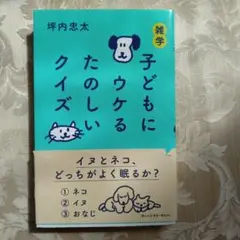 坪内忠太
雑学
子どもに
ウケる
たのしい
クイズ
イヌとネコ、
どっちがよく眠るか?
① ネコ
② イヌ
③ おなじ